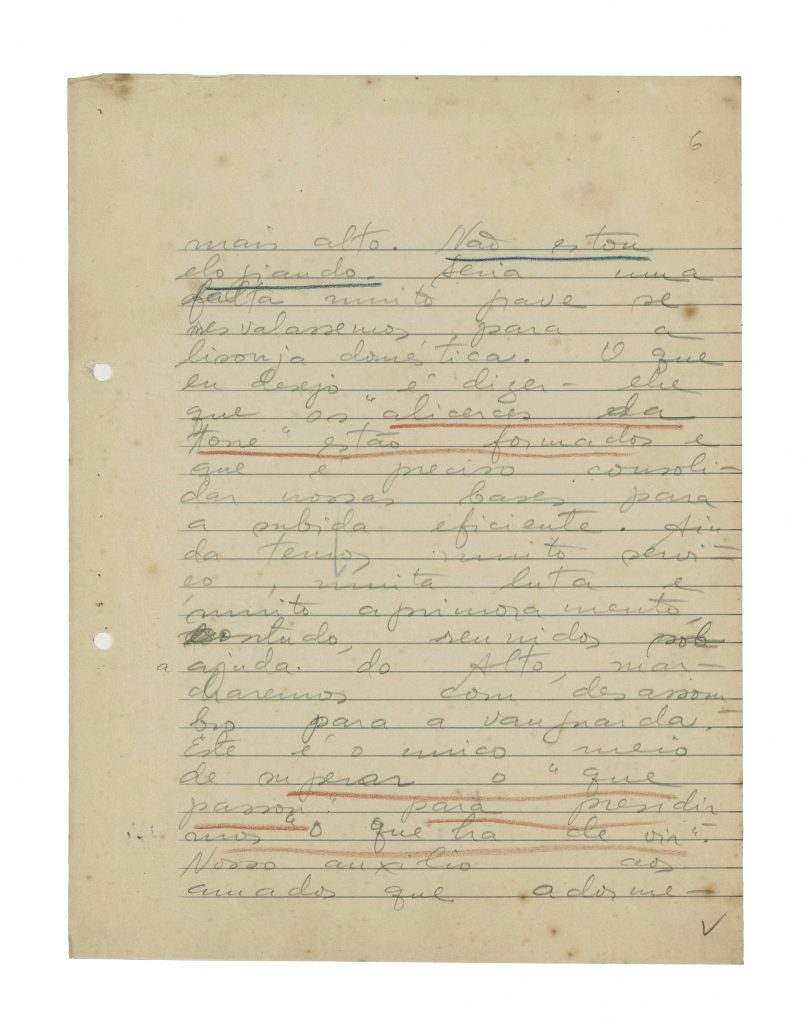 6
mais alto. Não estou
elogiando. Seria uma
falta muito grave se
resvalassemos para a
lisonja doméstica. O que
eu desejo é dizer-
que os "alicerces da
torre" estão formados e
que é preciso consoli-
dar nossas bases para
a subida eficiente. Ain
da temos muito servi-
ço, muita luta e
muito aprimoramento,
contudo, reunidos sob
a ajuda do Alto, mar-
charemos com desassom
bro para a vanguarda.-
Este é o unico meio
de superar o "que
passou" para presidir
mos "o que ha de vir".
Nosso auxilio aos
amados que adorme-